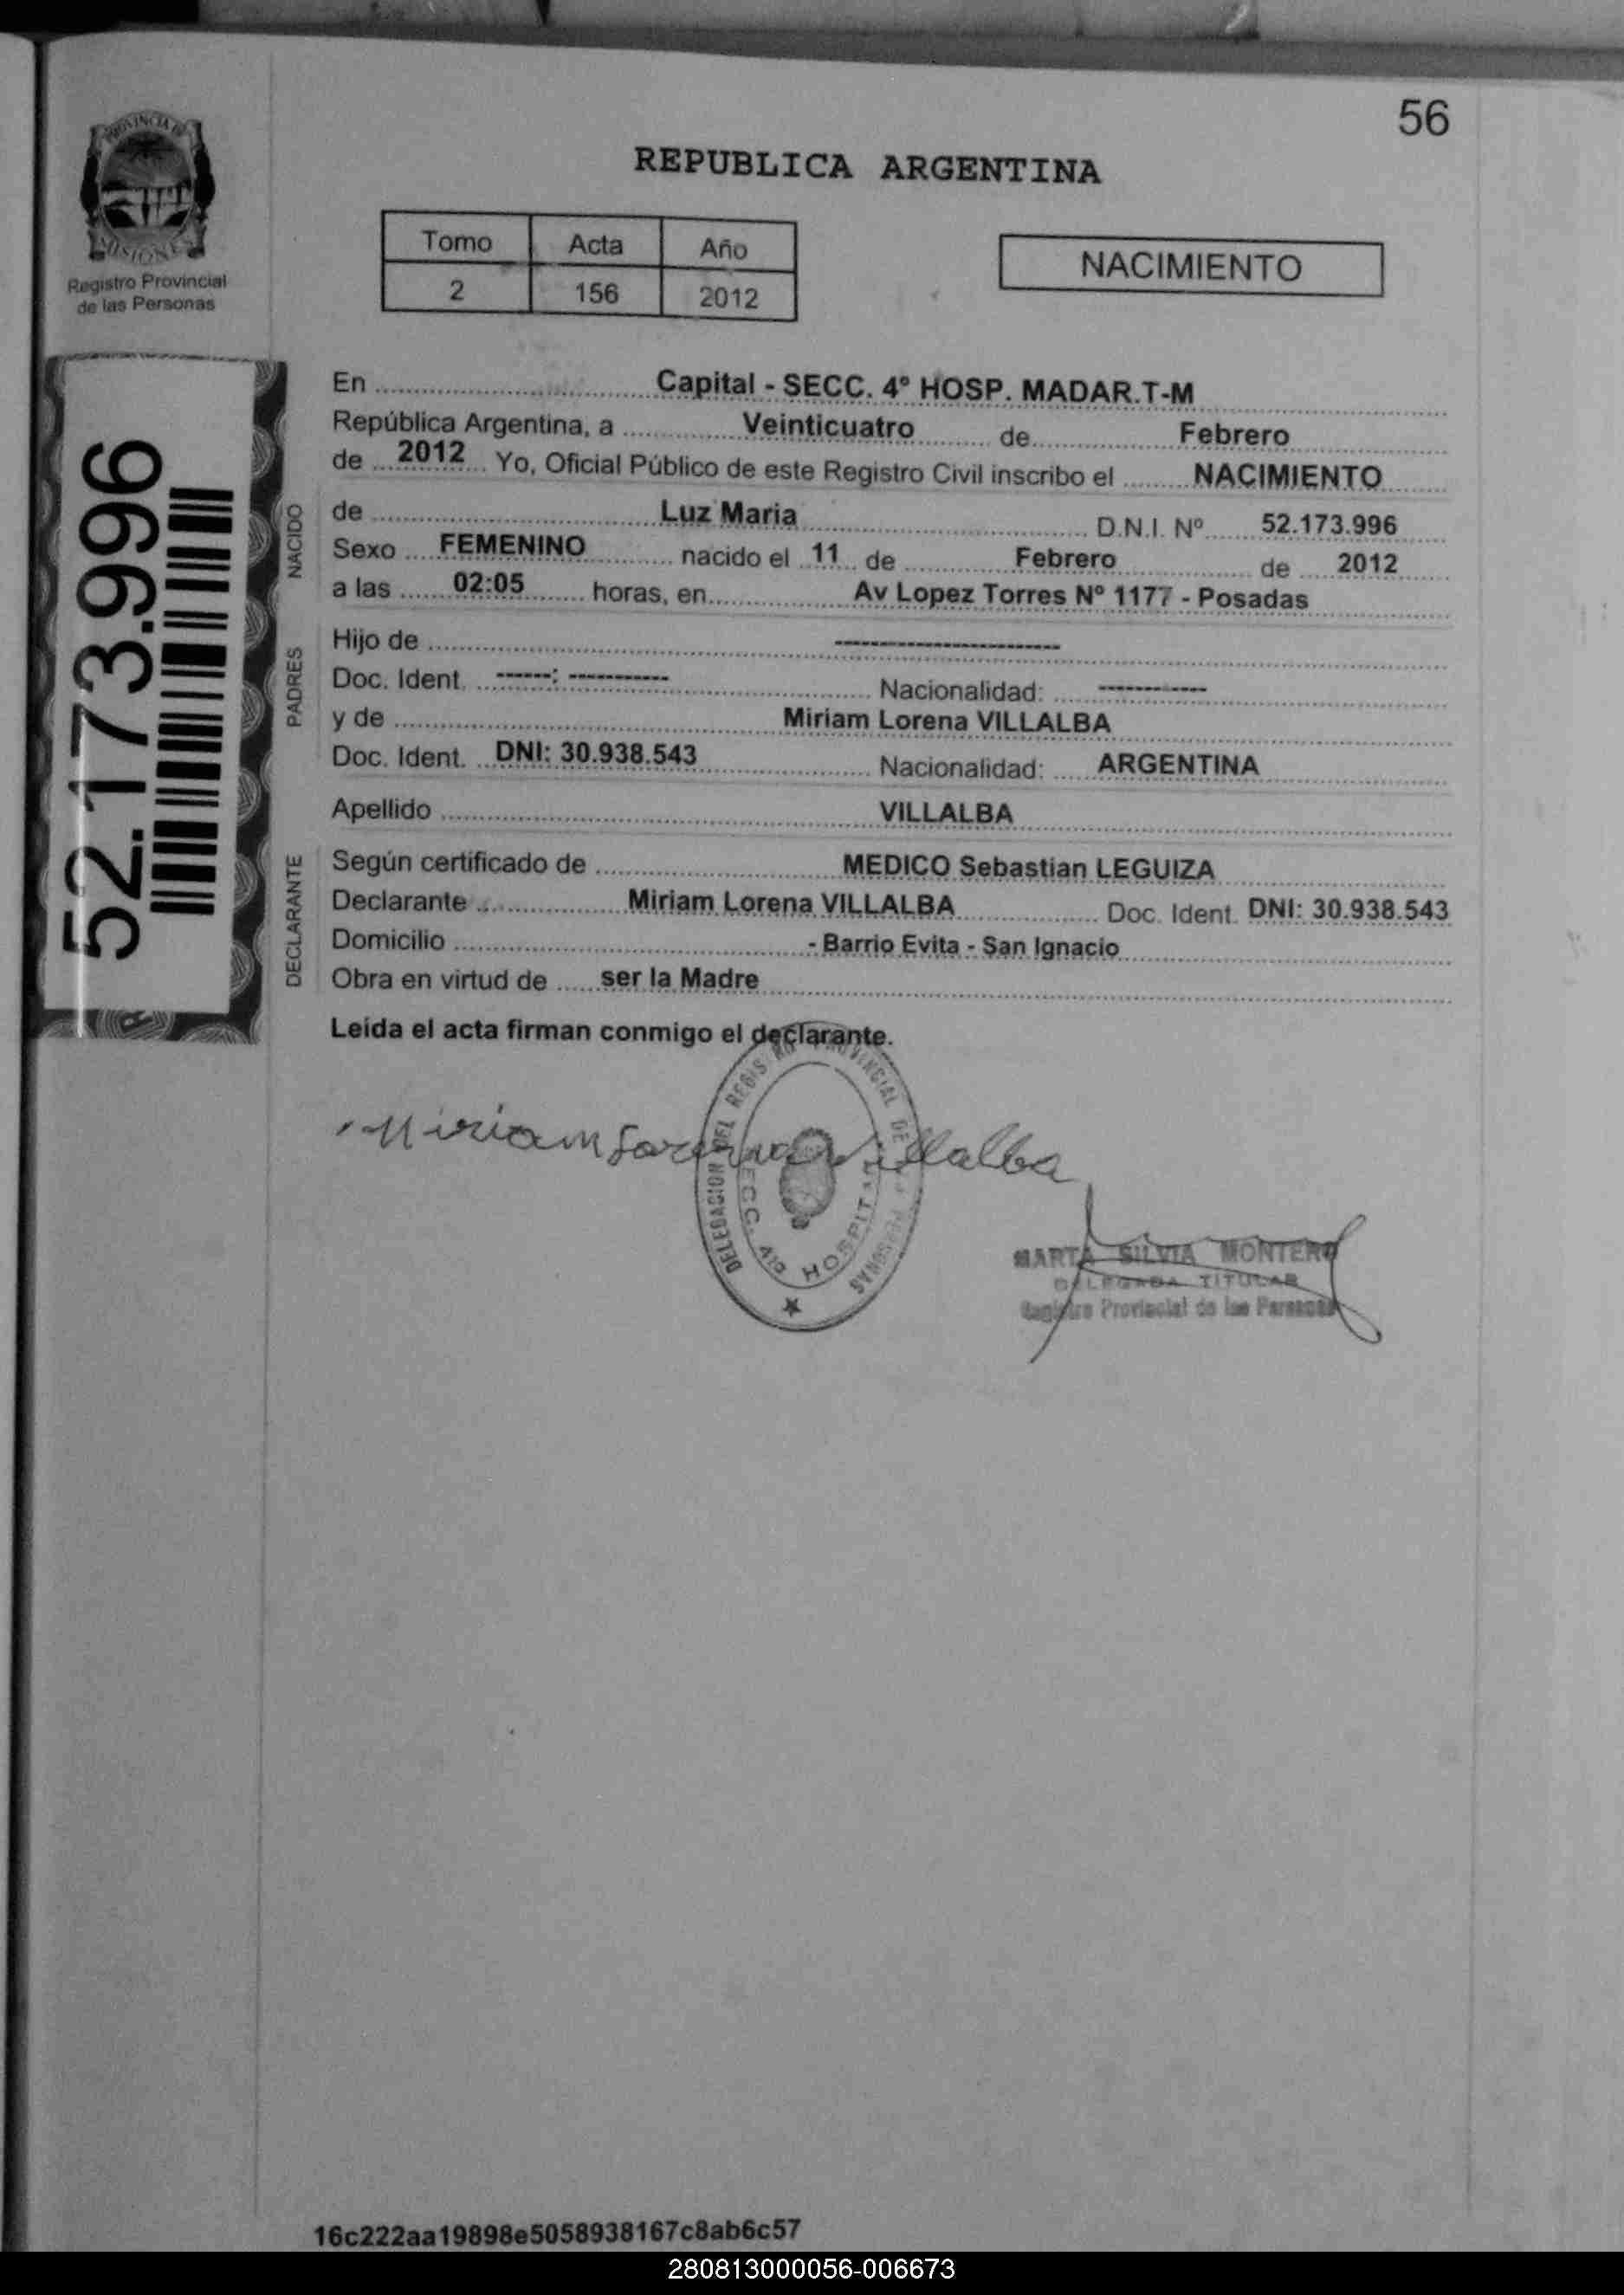 56
PROVINCIA DE
MISIONES
Registro Provincial
de las Personas
REPUBLICA ARGENTINA
Tomo Acta Año
2 156 2012
NACIMIENTO
52.173.996
En Capital - SECC. 4º HOSP. MADAR.T-M
República Argentina, a Veinticuatro de Febrero
de 2012 Yo, Oficial Público de este Registro Civil inscribo el NACIMIENTO
NACIDO
de Luz Maria D.N.I. Nº 52.173.996
Sexo FEMENINO nacido el 11 de Febrero de 2012
a las 02:05 horas, en Av Lopez Torres Nº 1177 - Posadas
PADRES
Hijo de ----------------------
Doc. Ident. ------: ----------- Nacionalidad: ------------
y de Miriam Lorena VILLALBA
Doc. Ident. DNI: 30.938.543 Nacionalidad: ARGENTINA
Apellido VILLALBA
DECLARANTE
Según certificado de MEDICO Sebastian LEGUIZA
Declarante Miriam Lorena VILLALBA Doc. Ident. DNI: 30.938.543
Domicilio - Barrio Evita - San Ignacio
Obra en virtud de ser la Madre
Leida el acta firman conmigo el declarante.
Miriam Lorena Villalba
DELEGACION DEL REGISTRO PROVINCIAL DE LAS PERSONAS
SECC. 4ta HOSPITAL
MARTA SILVIA MONTERO
DELEGADA TITULAR
Registro Provincial de las Personas
16c222aa19898e5058938167c8ab6c57
280813000056-006673